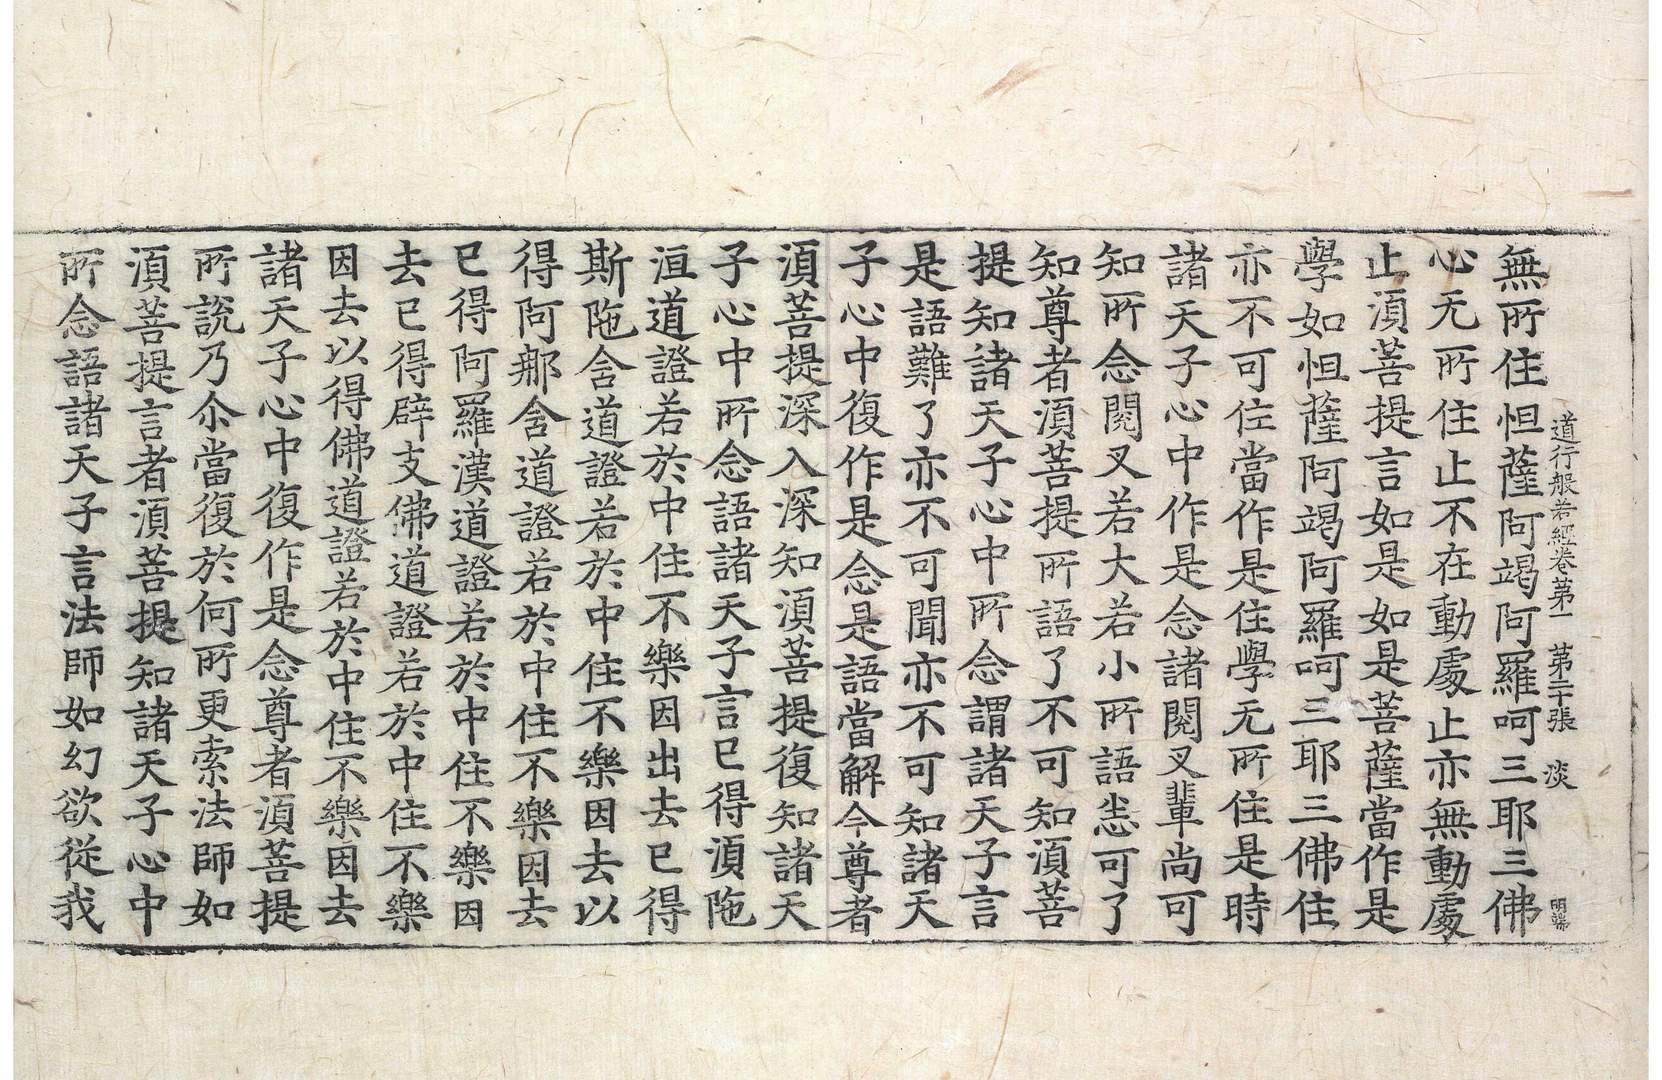 道行般若經卷第一 第二十張 淡
無所住怛薩阿竭阿羅呵三耶三佛
心无所住止不在動處止亦無動處
止湏菩提言如是如是菩薩當作是
學如怛薩阿竭阿羅呵三耶三佛住
亦不可住當作是住學无所住是時
諸天子心中作是念諸閱叉輩尚可
知所念閱叉若大若小所語悉可了
知尊者湏菩提所語了不可知湏菩
提知諸天子心中所念謂諸天子言
是語難了亦不可聞亦不可知諸天
子心中復作是念是語當解今尊者
湏菩提深入深知湏菩提復知諸天
子心中所念語諸天子言已得湏陁
洹道證若於中住不樂因出去已得
斯陁含道證若於中住不樂因去以
得阿那含道證若於中住不樂因去
已得阿羅漢道證若於中住不樂因
去已得辟支佛道證若於中住不樂
因去以得佛道證若於中住不樂因去
諸天子心中復作是念尊者湏菩提
所說乃尒當復於何所更索法師如
湏菩提言者湏菩提知諸天子心中
所念語諸天子言法師如幻欲從我